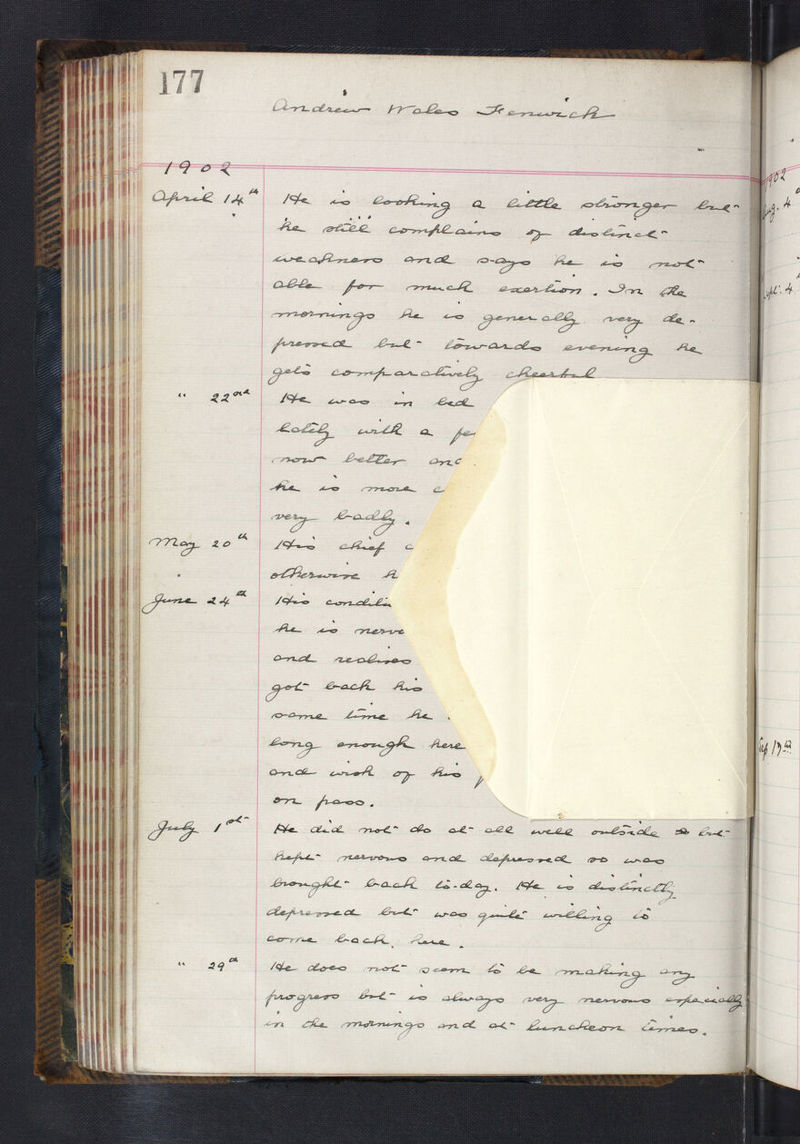 177
Andrew Wales Fenwick
1902
April 14th He is looking a little stronger but
he still complains of distinct
weakness and says he is not
able for much exertion. In the
mornings he is generally very de-
pressed but towards evening he
gets comparatively cheerful
" 22nd He was in bed
lately with a fe
now better and
he is more c
very badly.
May 20th His chief c
otherwise h
June 24th His conditi
he is nervo
and realises
got back his
same time he
long enough here
and wish of his
on pass.
July 1st He did not do at all well outside but
kept nervous and depressed so was
brought back to-day. He is distinctly
depressed but was quite willing to
come back here.
" 29th He does not seem to be making any
progress but is always very nervous especially
in the mornings and at luncheon times.
1902
Aug. 4
Sept. 4
Sep 19th